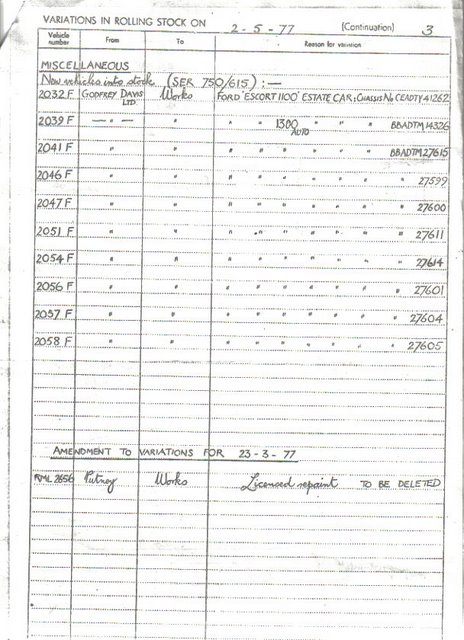 VARIATIONS IN ROLLING STOCK ON 2-5-77 (Continuation) 3
Vehicle number From To Reason for variation
MISCELLANEOUS
New vehicles into stock (SER 750/615) :—
2032 F GODFREY DAVIS LTD. Works FORD 'ESCORT 1100' ESTATE CAR: CHASSIS No CEADTY 41262
2039 F — " — " " " 1300 AUTO " " " BBADTM 14326
2041 F " " " " " " " " BBADTM 27615
2046 F " " " " " " " " " 27599
2047 F " " " " " " " " " 27600
2051 F " " " " " " " " " 27611
2054 F " " " " " " " " " 27614
2056 F " " " " " " " " " 27601
2057 F " " " " " " " " " 27604
2058 F " " " " " " " " " 27605
AMENDMENT TO VARIATIONS FOR 23-3-77
RML 2656 Putney Works Licenced repaint TO BE DELETED